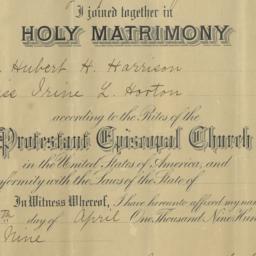 I joined together in
HOLY MATRIMONY
. Hubert H. Harrison
iss Irine L. Horton
according to the Rites of the
Protestant Episcopal Church
in the United States of America, and
nformity with the Laws of the State of
In Witness Whereof, I have hereunto affixed my nam
th day of April One Thousand Nine Hun
Nine